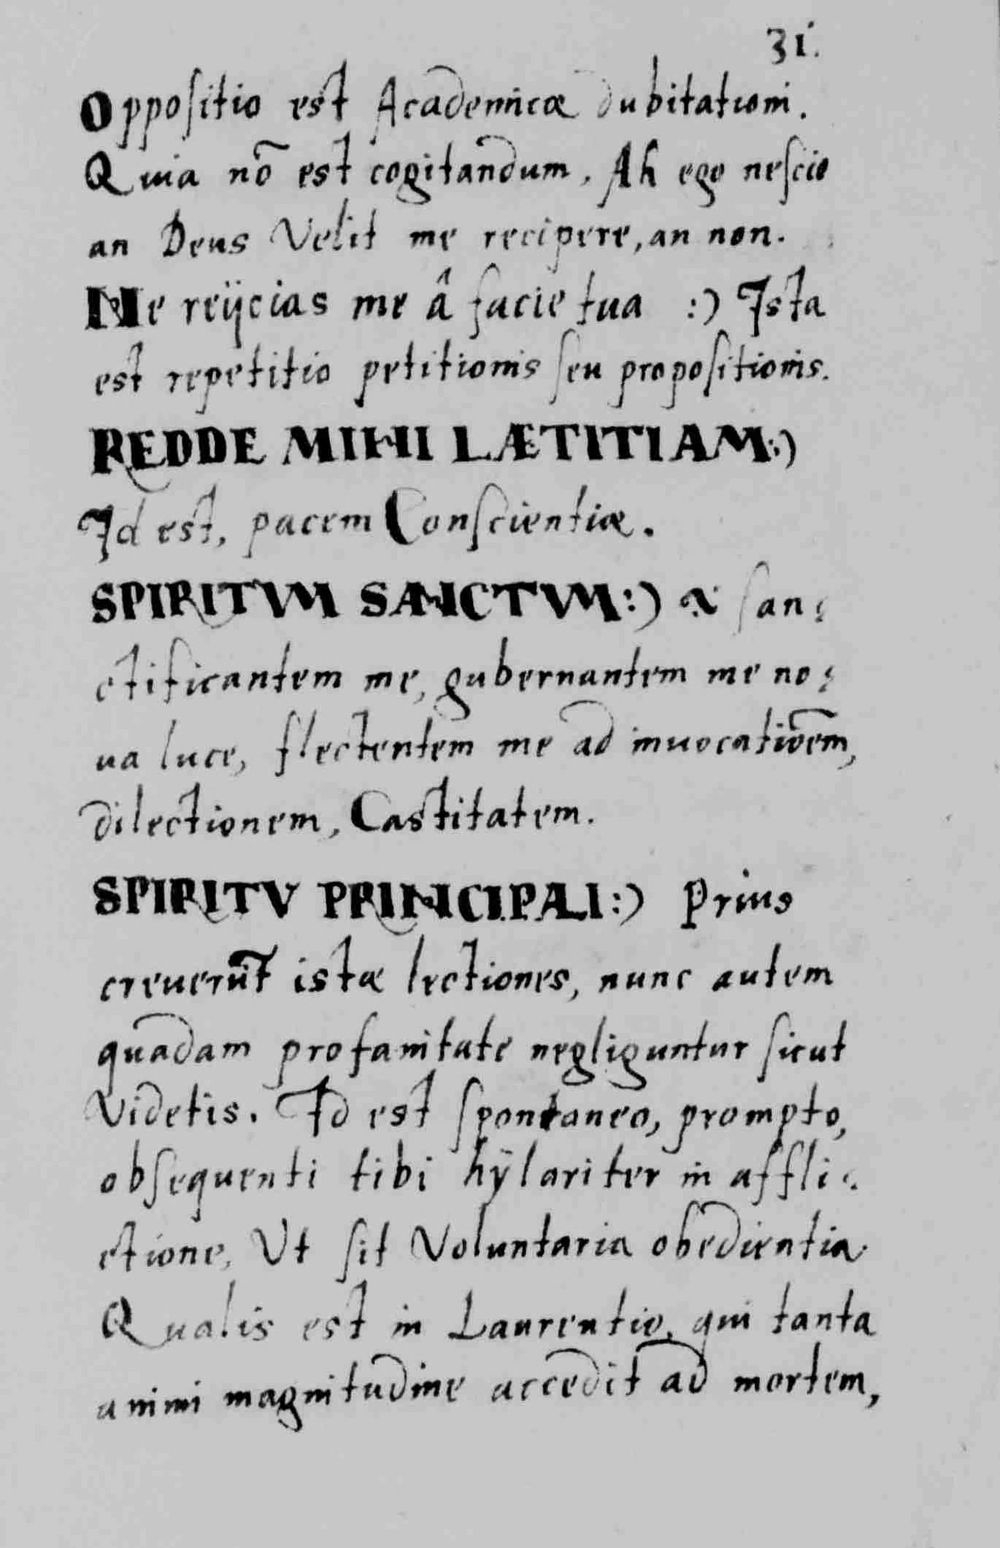 31.
Oppositio est Academicæ dubitationi.
Quia nõ est cogitandum, Ah ego nescio
an Deus Velit me recipere, an non.
Ne reijcias me â facie tua :) Ista
est repetitio petitionis seu propositionis.
REDDE MIHI LÆTITIAM:)
Id est, pacem Conscientiæ.
SPIRITVM SANCTVM:) san⸗
ctificantem me, gubernantem me no⸗
ua luce, flectentem me ad inuocatiõem,
dilectionem, Castitatem.
SPIRITV PRINCIPALI:) Prius
creuerũt istæ lectiones, nunc autem
quadam profanitate negliguntur sicut
Videtis. Id est spontaneo, prompto,
obsequenti tibi hÿlariter in affli⸗
ctione, Ut sit Voluntaria obedientia
Qualis est in Laurentio, qui tanta
animi magnitudine accedit ad mortem,